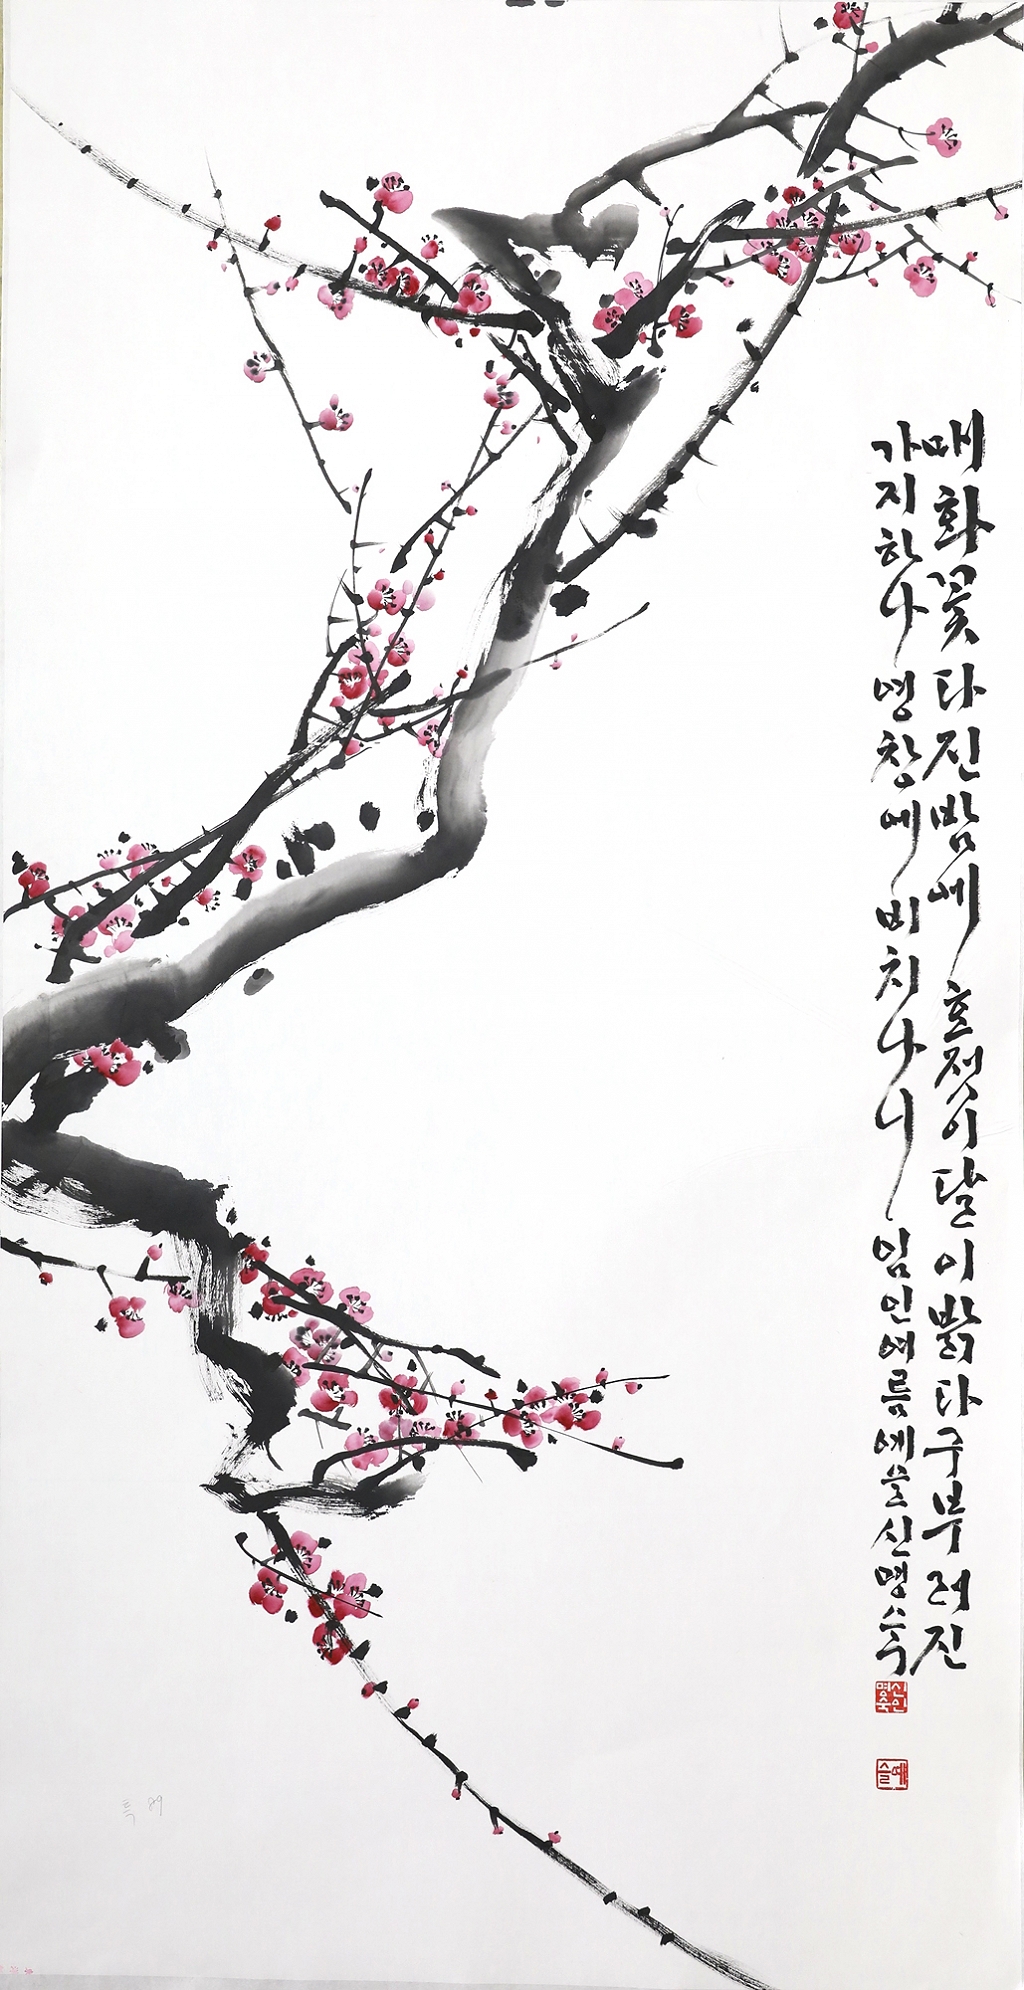 매화꽃다진밤에 호젓이달이밝다구부러진
가지하나 영창에 비치나니 임인여름예슬신명숙
신인명숙
예슬
특 89